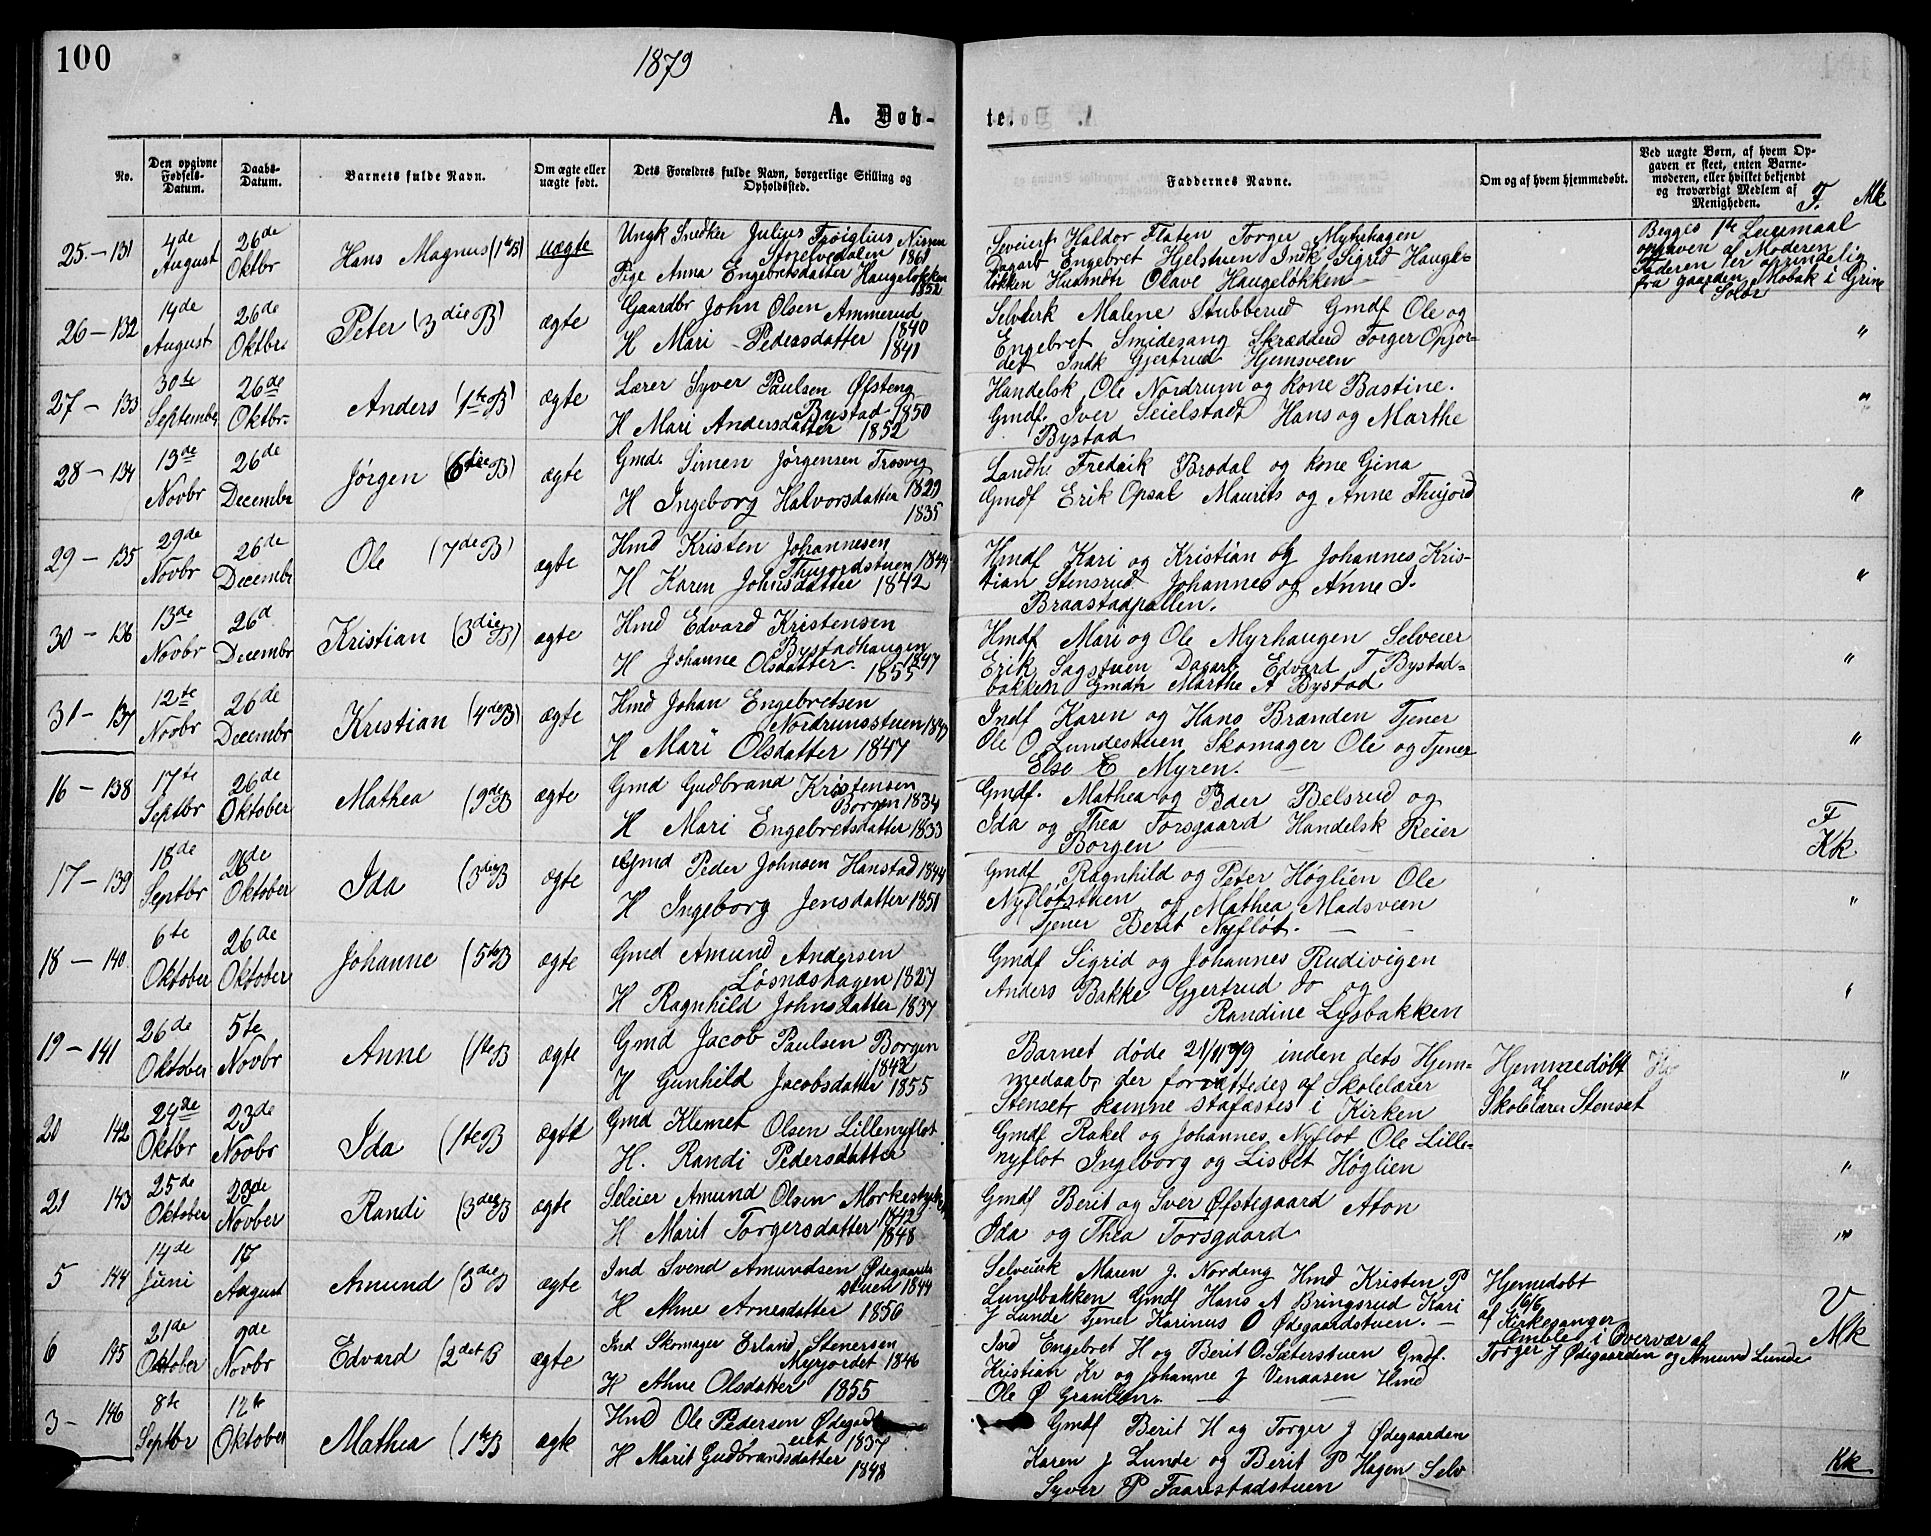 100
1879
A. Døb-
te.
No.
Den opgivne Fødsels-Datum.
Daabs-Datum.
Barnets fulde Navn.
Om ægte eller uægte født.
Dets Forældres fulde Navn, borgerlige Stilling og Opholdssted.
Faddernes Navne.
Om og af hvem hjemmedøbt.
Ved uægte Børn, af hvem Opgaven er skeet, enten Barnemoderen, eller hvilket bekjendt og troværdigt Medlem af Menigheden.
F. Mk
25-131 4de August 26de Oktbr Hans Magnus (1teB) uægte
Ungk Snedker Julius Nissen
Storelvedalen 1861
Pige Anna Engebretsdatter Haugeløkken
1852
Halvor Flaten Torger Myhrhagen
Dagarb Engebret Hjelstuen Indk Sigrid Hauge-
løkken Husmdtr Olave Haugeløkken
Begges 1te Leiermaal
opgaven af Moderen
Faderen er oprindelig
fra gaarden i Grine
Solør
26-132 14de August 26de Oktbr Peter (3dieB) ægte
Gaardbr John Olsen Ammerud
1840
H Mari Pedersdatter 1841
Selveierk Malene Stubberud Gmdf Ole og
Engebret Smidesang Skrædder Torger Opjor-
det Indk Gjertrud Hjemsveen
"
27-133 30te Septembr 26de Oktbr. Anders (1teB) ægte
Lærer Syver Paulsen Øfsteng
Bystad 1850
H Mari Andersdatter 1852
Handelsk Ole Nordrum og kone Bastine.
Gmdf. Iver Seielstad Hans og Marthe
Bystad
"
28-134 13de Novbr 26de Decembr Jørgen (6tieB) ægte
Gmd. Simen Jørgensen Trosvig
1829
H Ingeborg Halvorsdatter
1835
Landh. Fredrik Brodal og kone Gina
Gmdf Erik Opsal Maurits og Anne Thujord
"
29-135 29de Novbr 26de Decembr Ole (7deB) ægte
Hmd Kristen Johannesen
Thujordstuen 1844
H Karen Johnsdatter 1842
Hmdf Kari og Kristian og Johannes Kris-
tian Stensrud Johannes og Anne I.
Braastadpallen.
"
30-136 13de Novbr 26d Decembr Kristian (3dieB) ægte
Hmd Edvard Kristensen
Bystadhaugen
1847
H Johanne Olsdatter. 1855
Hmdf Mari og Ole Myrhaugen Selveier
Erik Sagstuen Dagarb. Edvart T Bystad-
bakken Gmdtr Marthe A Bystad
"
31-137 12te Novbr 26de Decembr Kristian (4deB) ægte
Hmd Johan Engebretsen
Nordrumsstuen 1843
H Mari Olsdatter 1847
Indf Karen og Hans Brænden Tjener
Ole O Lundestuen Skomager Ole og Tjener
Else E Myren.
"
16-138 17te Septbr 26de Oktober Mathea (9deB ægte
Gmd Gudbrand Kristensen
Borgen 1834
H Mari Engebretsdatter 1833
Gmdf. Mathea og Peder Belsrud og
Ida og Thea Torsgaard Handelsk Reier
Borgen
F
Kk
17-139 18de Septbr 26de Oktober Ida (3dieB ægte
Gmd Peder Johnsen Hanstad 1844
H Ingeborg Jensdatter 1851
Gmdf Ragnhild og Peter Høglien Ole
Nyflotstuen og Mathea Madsveen
Tjener Berit Nyfløt.
"
18-140 6te Oktober 26de Oktober Johanne (5teB ægte
Gmd Amund Andersen
Løsnæshagen 1827
H Ragnhild Johnsdatter 1837
Gmdf Sigrid og Johannes Rudivigen
Anders Bakke Gjertrud do og
Randine Lysbakken
"
19-141 26de Oktober 5te Novbr Anne (1teB ægte
Gmd Jacob Paulsen Borgen
1842
H Gunhild Jacobsdatter 1855
Barnet døde 21/11 79 inden dets Hjem-
medaab, der forrettedes af Skolelærer
Stenset, kunne stafæstes i Kirken
Hjemmedøbt
af
Skolelærer Stenset
"
20 142 24de Oktbr 23de Novbr Ida (1teB ægte
Gmd Klemet Olsen Lillenyflot
H. Randi Pedersdatter
Gmdf Rakel og Johannes Nyflot Ole Lille-
nyflot Ingeborg og Lisbet Høglien
"
21 143 25de Oktober 23de Novber Randi (3dieB ægte
Seleier Amund Olsen
1842
H Marit Torgersdatter 1848
Gmdf Berit og Iver Øfstegaard Aton
Ida og Thea Torsgaard
"
5 144 14de Juni 17 August Amund (3dieB ægte
Ind Svend Amundsen Ødegaards
stuen 1844
H Ahne Arnesdatter 1850
Selveierk Maren J. Nordeng Hmd Kristen P
Lundbakken Gmdf Hans A Bringsrud Kari
J Lunde Tjener Karinus O Ødegaardstuen.
Hjemedøbt
16/6
af Kirkesanger
Amble i Overvær af
Torger J Ødegaarden og Amund Lunde
V
Mk
6 145 21de Oktober 9de Novbr Edvard (2detB ægte
Ind Skomager Erland Stenersen
Myrjordet 1846
H Ahne Olsdatter 1855
Ind Engebret H og Berit O. Sæterstuen Gmdf.
Kristian Kr og Johanne J Venaasen Hmd
Ole Ø
3- 146 8te Septbr 12te Oktober Mathea (1teB ægte
Hmd Ole Pedersen Ødegaards
eiet 1837
H Marit Gudbrandsdatter
1848
Gmdf Berit H og Torger J Ødegaarden
Karen J Lunde og Berit P Hagen Selv
Syver P Faarestadstuen
Kk